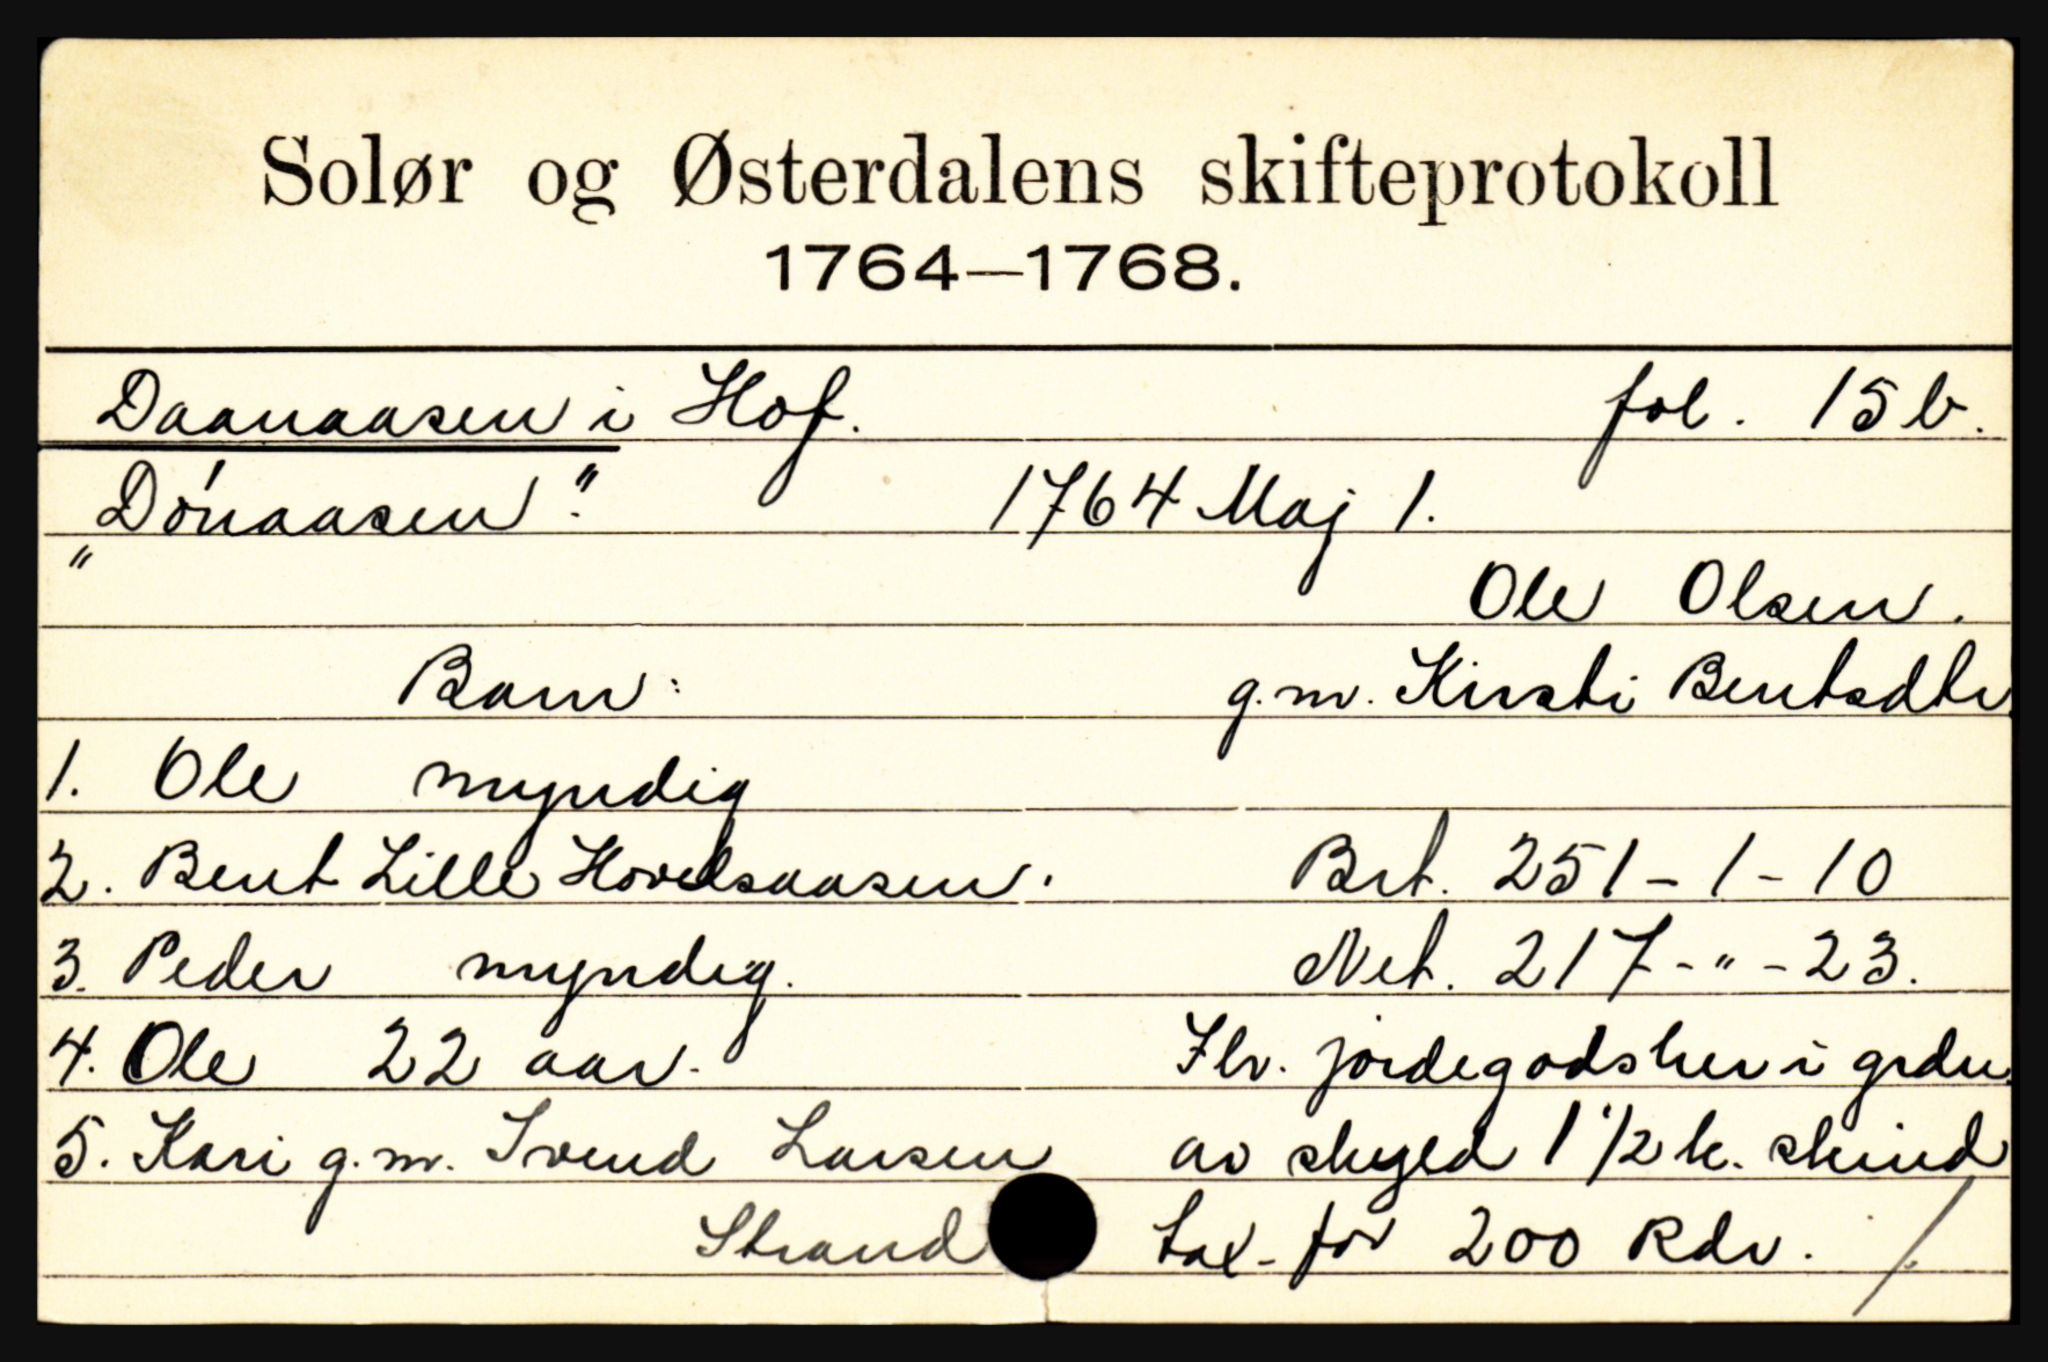 Solør og Østerdalens skifteprotokoll
1764—1768.
Daanaasen i Hof. fol. 15 b.
"Dónaasen". 1764 Maj 1.
" Ole Olsen.
Barn: g.m. Kirsti Bentsdtr.
1. Ole myndig
2. Bent Lille Hovelsaasen. Brt. 251 - 1 - 10
3. Peder myndig. Net. 217 - " - 23.
4. Ole 22 aar. Flr. jordegodsher i grdn.
5. Kari g.m. Svend Larsen av skyld 1 1/2 k. skind
Strand tax. for 200 Rdr. /.